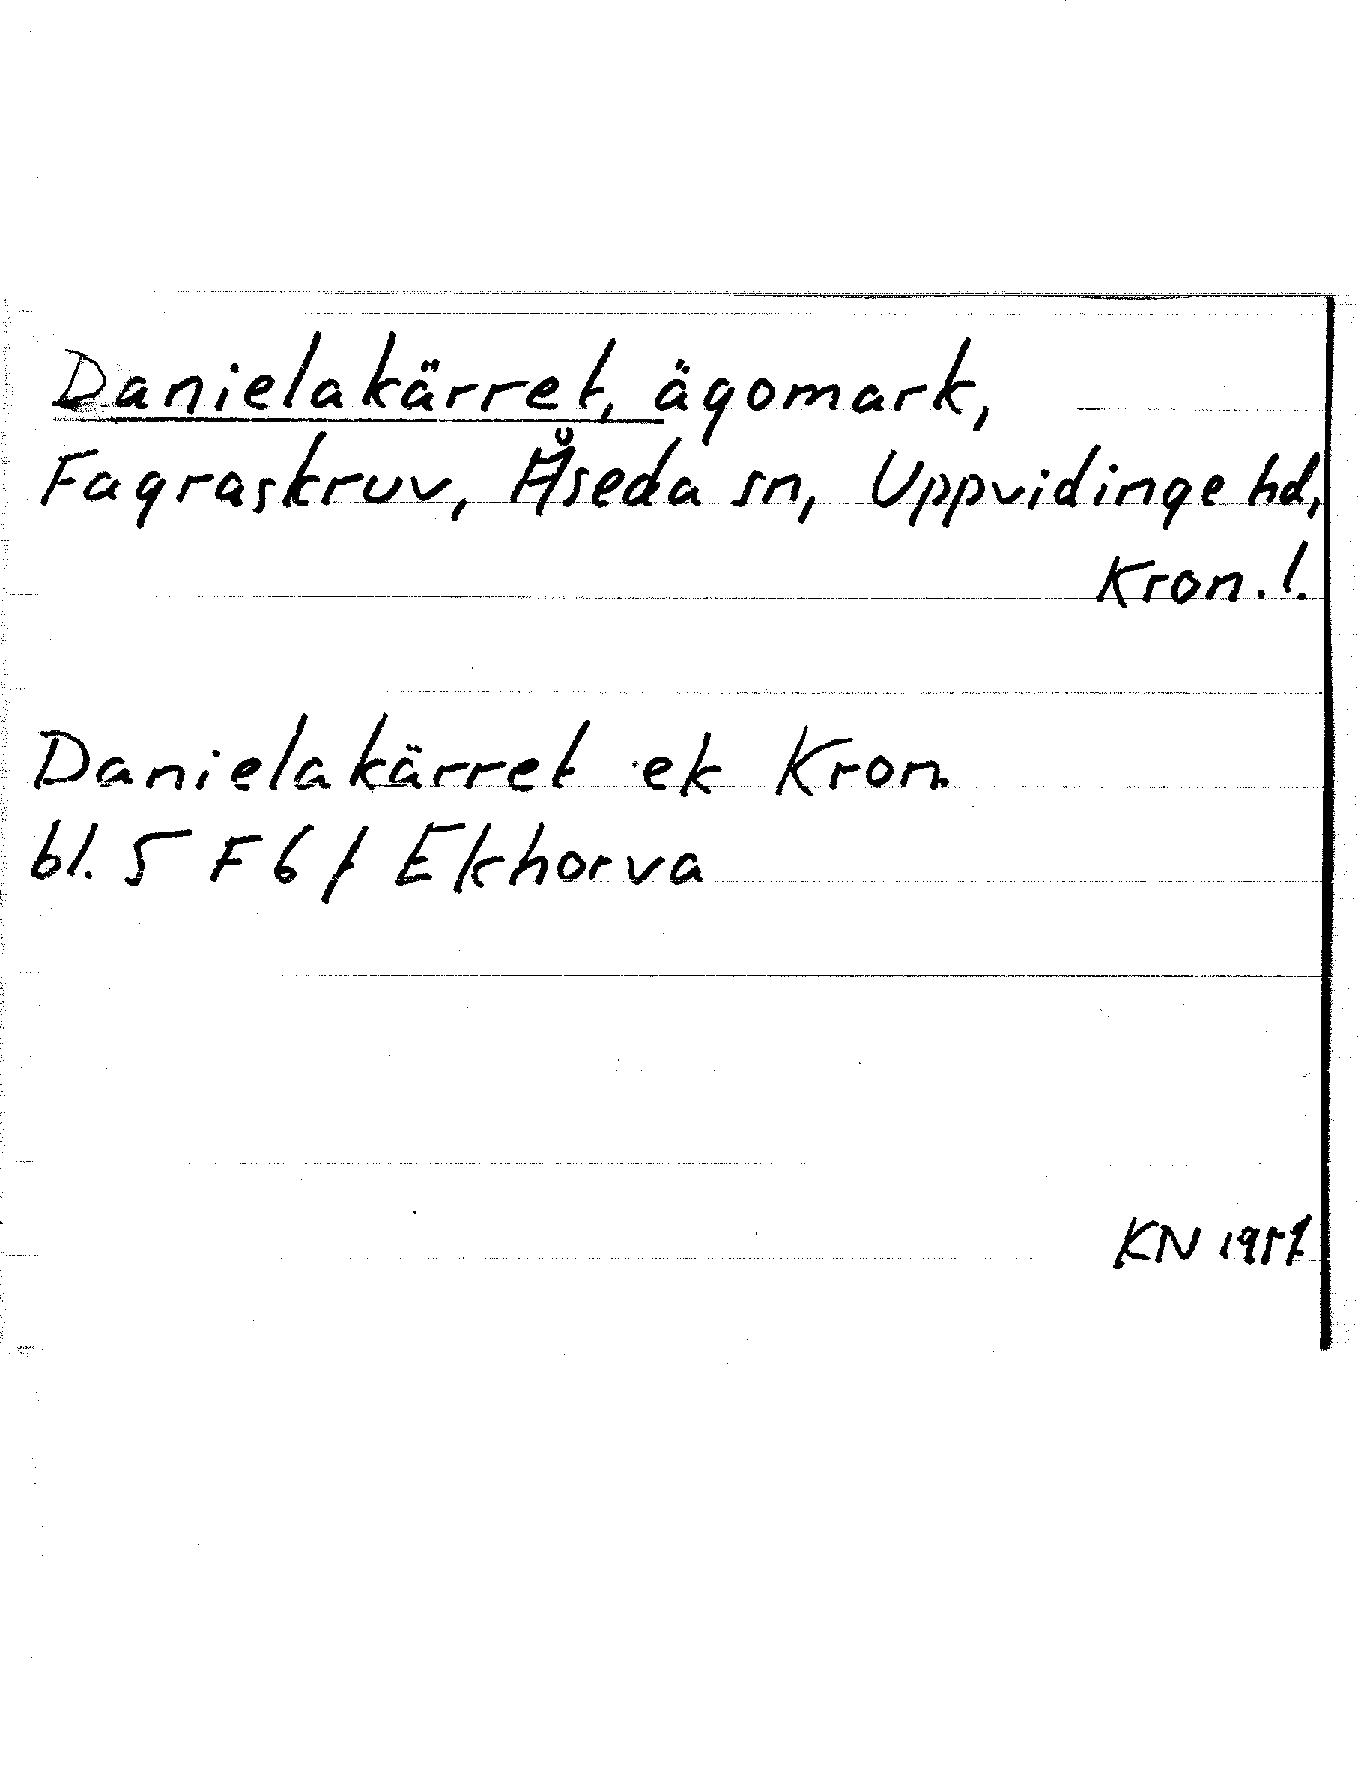 Danielakärret, ägomark,
Fagraskruv, Åseda sn, Uppvidinge hd,
Kron.l.
Danielakärret ek Kron
bl. 5 F 6 f Ekhorva
KN 1957